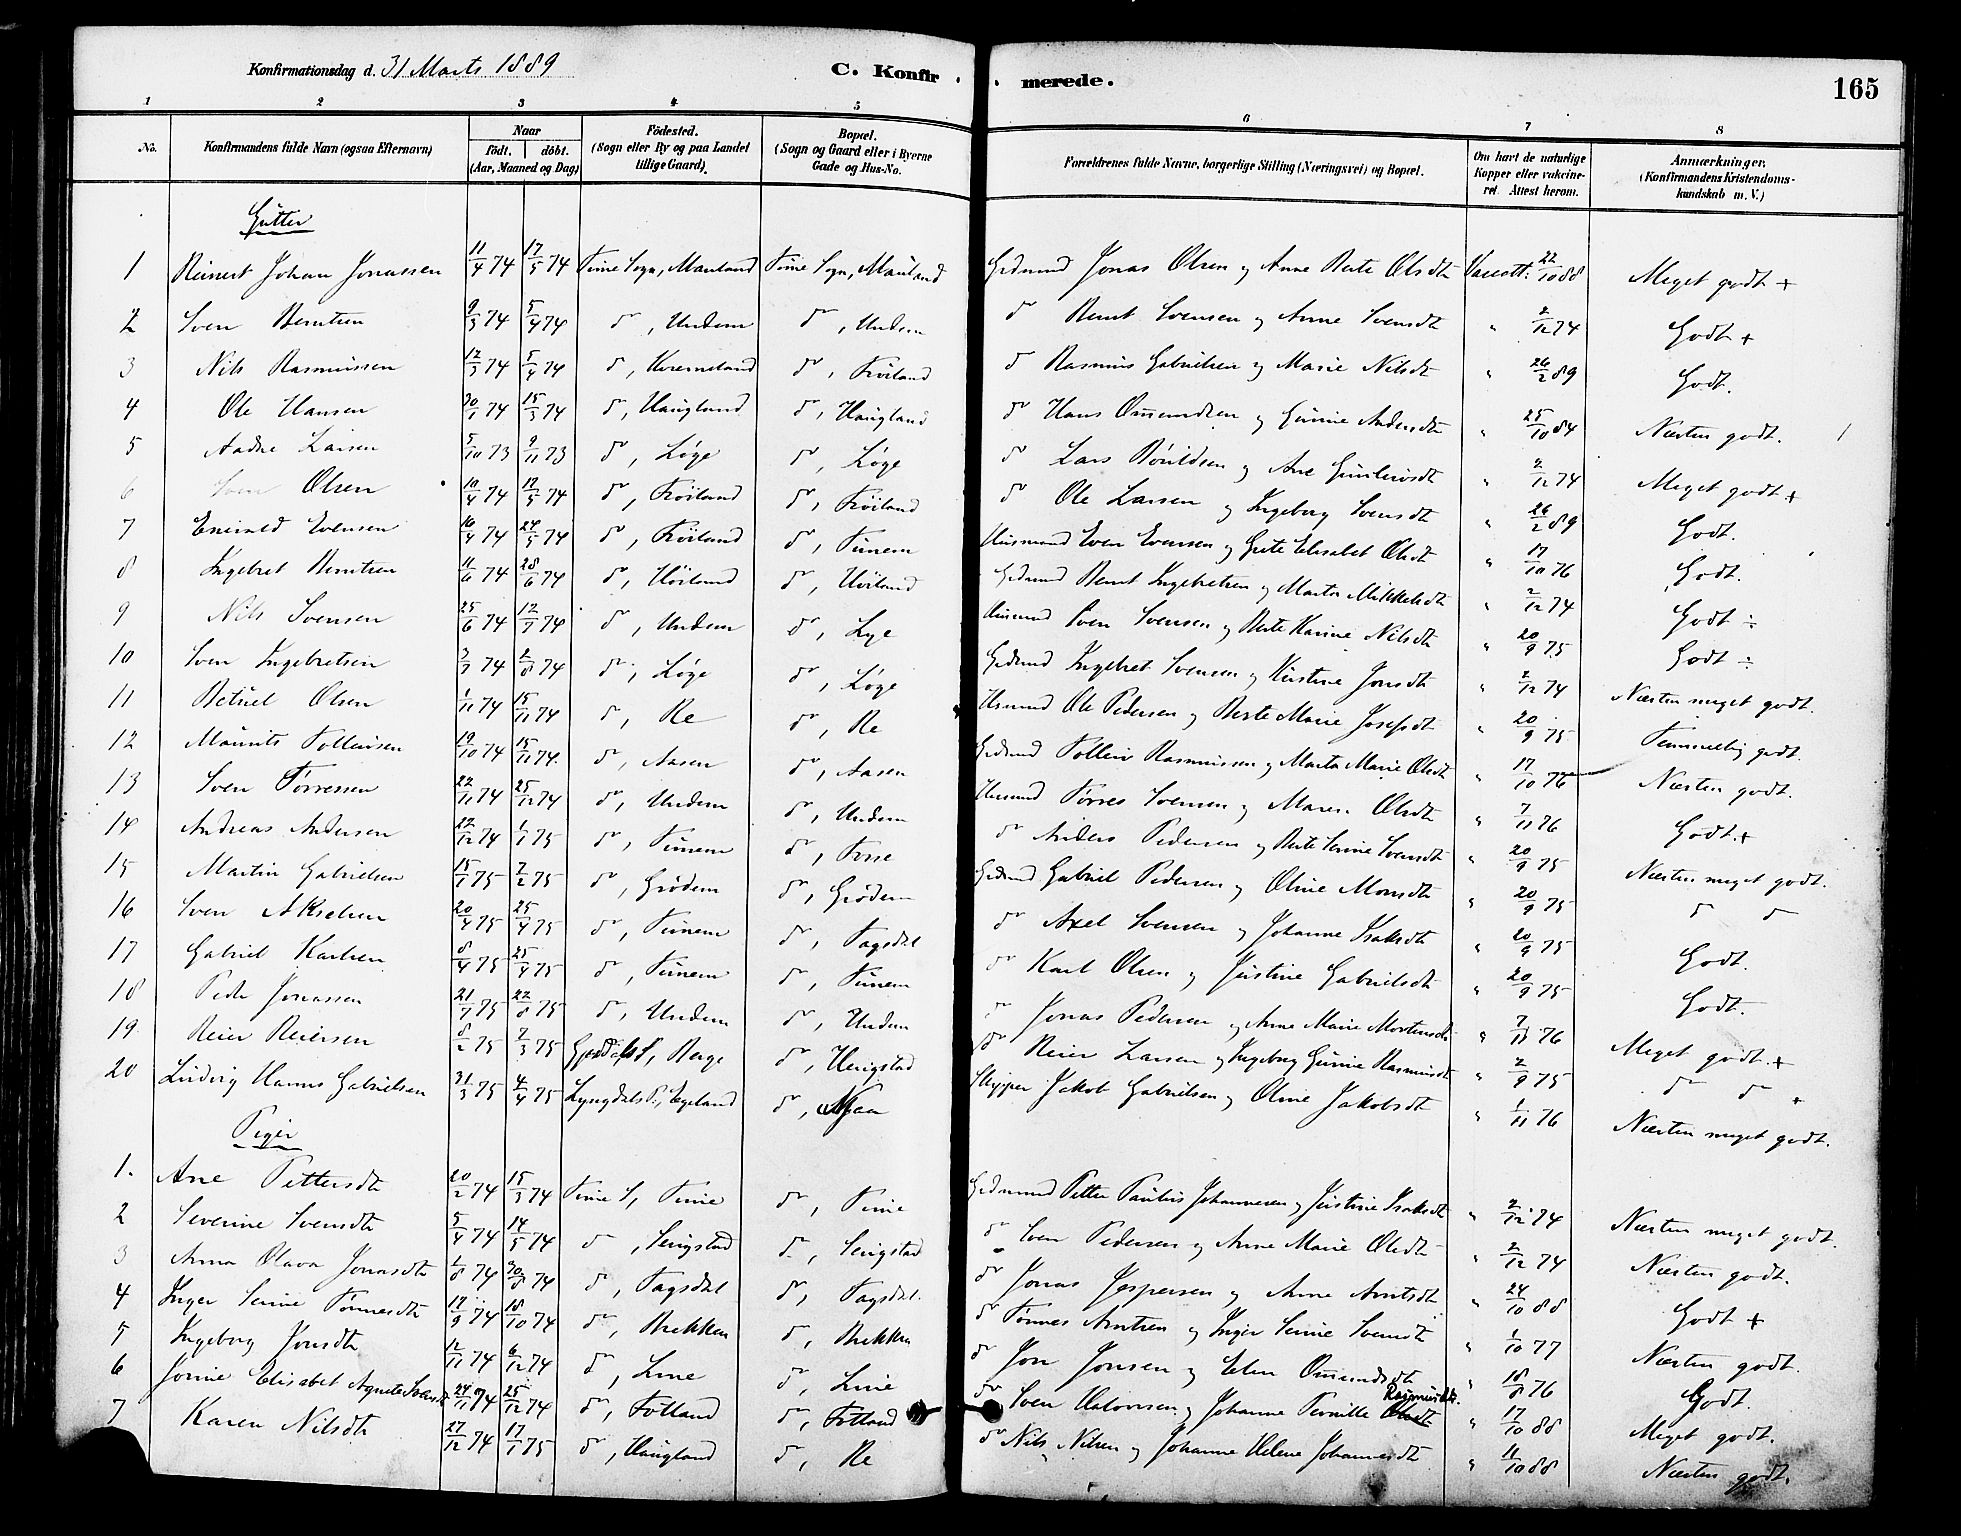 Konfirmationsdag d. 31 Marts 1889
C. Konfir merede. 165
1 2 3 4 5 6 7 8
No. Konfirmandens fulde Navn (ogsaa Efternavn) Naar födt. döbt. (Aar, Maaned og Dag) Födested. (Sogn eller By og paa Landet tillige Gaard). Bopæl. (Sogn og Gaard eller i Byerne Gade og Hus-No. Forældrenes fulde Navne, borgerlige Stilling (Næringsvei) og Bopæl. Om havt de naturlige Kopper eller vakcineret. Attest herom. Anmærkninger. (Konfirmandens Kristendomskundskab m. V.)
Gutter
1 Reinert Johan Jonassen 11/4 74 17/5 74 Time Sogn, Mauland Time Sogn, Mauland Grdmand Jonas Olsen og Anne Berte Olsdt Vaccatt: 22/10 88 Meget godt +
2 Sven Berntsen 9/3 74 5/4 74 do, Undem do, Undem do Bernt Svensen og Anne Svensdt " 2/12 74 Godt +
3 Nils Rasmussen 12/3 74 5/4 74 do, Kverneland do, Fröiland do Rasmus Gabrielsen og Marie Nilsdt " 26/2 89 Godt.
4 Ole Hansen 20/1 74 15/3 74 do, Haugland do, Haugland do Hans Omundsen og Gunie Andersdt " 25/10 84 Næsten godt. 1
5 Aadne Larsen 5/10 73 9/11 73 do, Løge do, Løge do Lars Bouildsen og Ane Gunleivsdt " 2/12 74 Meget godt +
6 Sven Olsen 10/4 74 17/5 74 do, Fröiland do, Fröiland do Ole Larsen og Ingeborg Svensdt " 26/2 89 Godt.
7 Enevald Evensen 16/4 74 24/5 74 do, Fröiland do, Tunem Husmand Even Evensen og Grete Elisabet Olsdt " 17/10 76 Godt.
8 Ingebret Berntsen 11/6 74 28/6 74 do, Höiland do, Höiland Grdmand Bernt Ingebretsen og Marta Mikkelsdt " 2/12 74 Godt ÷
9 Nils Svensen 25/6 74 12/7 74 do, Undem do, Lye Husmand Sven Svensen og Berte Karine Nilsdt " 20/9 75 Godt ÷
10 Sven Ingebretsen 3/7 74 2/8 74 do, Løge do, Løge Grdmand Ingebret Svensen og Kirstine Jonsdt " 2/12 74 Næsten meget godt.
11 Betuel Olsen 1/11 74 15/11 74 do, Re do, Re Husmand Ole Pedersen og Berte Marie Josefsdt " 20/9 75 Temmelig godt.
12 Maurits Tolleivsen 19/10 74 15/11 74 do, Aasen do, Aasen Grdmand Tolleiv Rasmussen og Marta Marie Olsdt " 17/10 76 Næsten godt.
13 Sven Tørressen 22/11 74 25/12 74 do, Undem do, Undem Husmand Tørres Svensen og Maren Olsdt " 7/11 76 Godt. +
14 Andreas Andersen 22/12 74 1/1 75 do, Tunem do, Fosse do Anders Pedersen og Berte Serine Svensdt " 20/9 75 Næsten meget godt.
15 Martin Gabrielsen 15/1 75 7/2 75 do, Grödem do, Grödem Grdmand Gabriel Pedersen og Oline Monsdt " 20/9 75 do do
16 Sven Akselsen 20/4 75 25/4 75 do, Tunem do, Tagsdal do Axel Svensen og Johanne Isaksdt " 20/9 75 Godt.
17 Gabriel Karlsen 8/4 75 25/4 75 do, Tunem do, Tunem do Karl Olsen og Justine Gabrielsdt " 20/9 75 Godt.
18 Peder Jonassen 21/7 75 22/8 75 do, Undem do, Undem do Jonas Pedersen og Anne Marie Mortensdt " 7/11 76 Meget godt +
19 Reier Reiersen 8/2 75 7/3 75 Gjesdal S, Berge do, Hengstad do Reier Larsen og Ingeborg Gunie Rasmusdt " 2/9 75 do do +
20 Ludvig Hannes Gabrielsen 31/3 75 4/4 75 Lyngdals P., Egeland do, Njaa Skipper Jakob Gabrielsen og Oline Jakobsdt " 1/11 76 Næsten meget godt.
Piger
1. Ane Pettersdt 20/2 74 15/3 74 Time S, Time do, Time Grdmand Petter Paulus Johannesen og Justine Isaksdt " 2/12 74 Næsten meget godt.
2 Severine Svensdt 5/4 74 14/5 74 do, Sengstad do, Sengstad do Sven Pedersen og Anne Marie Olsdt " 2/12 74 Næsten godt.
3 Anna Olava Jonasdt 1/8 74 30/8 74 do, Tagsdal do, Tagsdal. do Jonas Jespersen og Anne Arntsdt " 24/10 88 Godt +
4 Inger Serine Tönnesdt 17/9 74 18/10 74 do, Brekken do, Brekken do Tönnes Arntsen og Inger Serine Svensdt " 1/10 77 Næsten godt.
5 Ingeborg Jonsdt 12/11 74 6/12 74 do, Line do, Line do Jon Jonsen og Elen Omundsdt " 18/8 76 Godt.
6 Jonine Elisabet Agnete Svensdt 24/11 74 25/12 74 do, Fotland do, Fotland do Sven Halvorsen og Johanne Pernille Rasmusdt. " 17/10 88 Meget godt.
7 Karen Nilsdt 27/12 74 17/1 75 do, Haugland do, Re do Nils Nilsen og Johanne Helene Johannesdt " 11/10 88 Næsten godt.